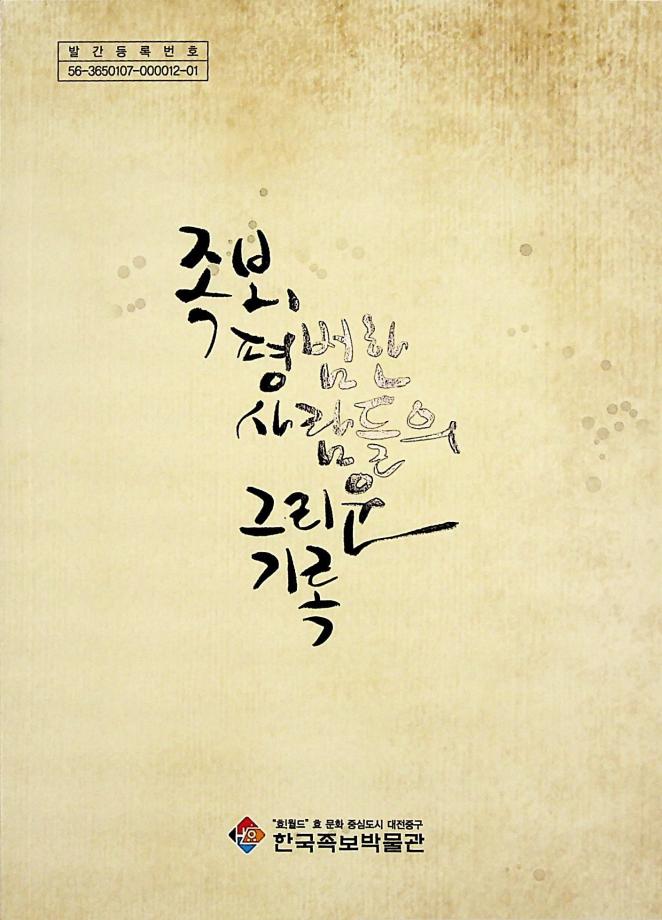 발 간 등 록 번 호
56-3650107-000012-01
족보,
평범한
사람들의
그리운
기록
"효!월드" 효 문화 중심도시 대전중구
한국족보박물관